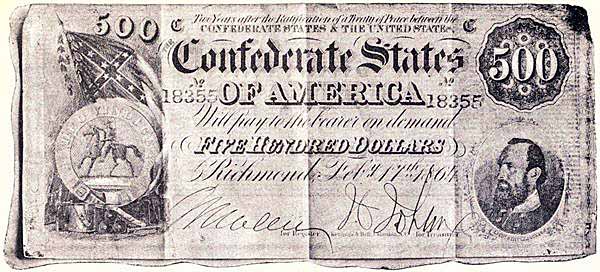 Two Years after the Ratification of a Treaty of Peace between the
CONFEDERATE STATES & THE UNITED STATES,
500
C C
Confederate States
500
No No
18355 18355
OF AMERICA
Will pay to the bearer on demand
FIVE HUNDRED DOLLARS
Richmond, Feby. 17th 1864
for Register
for Treasurer